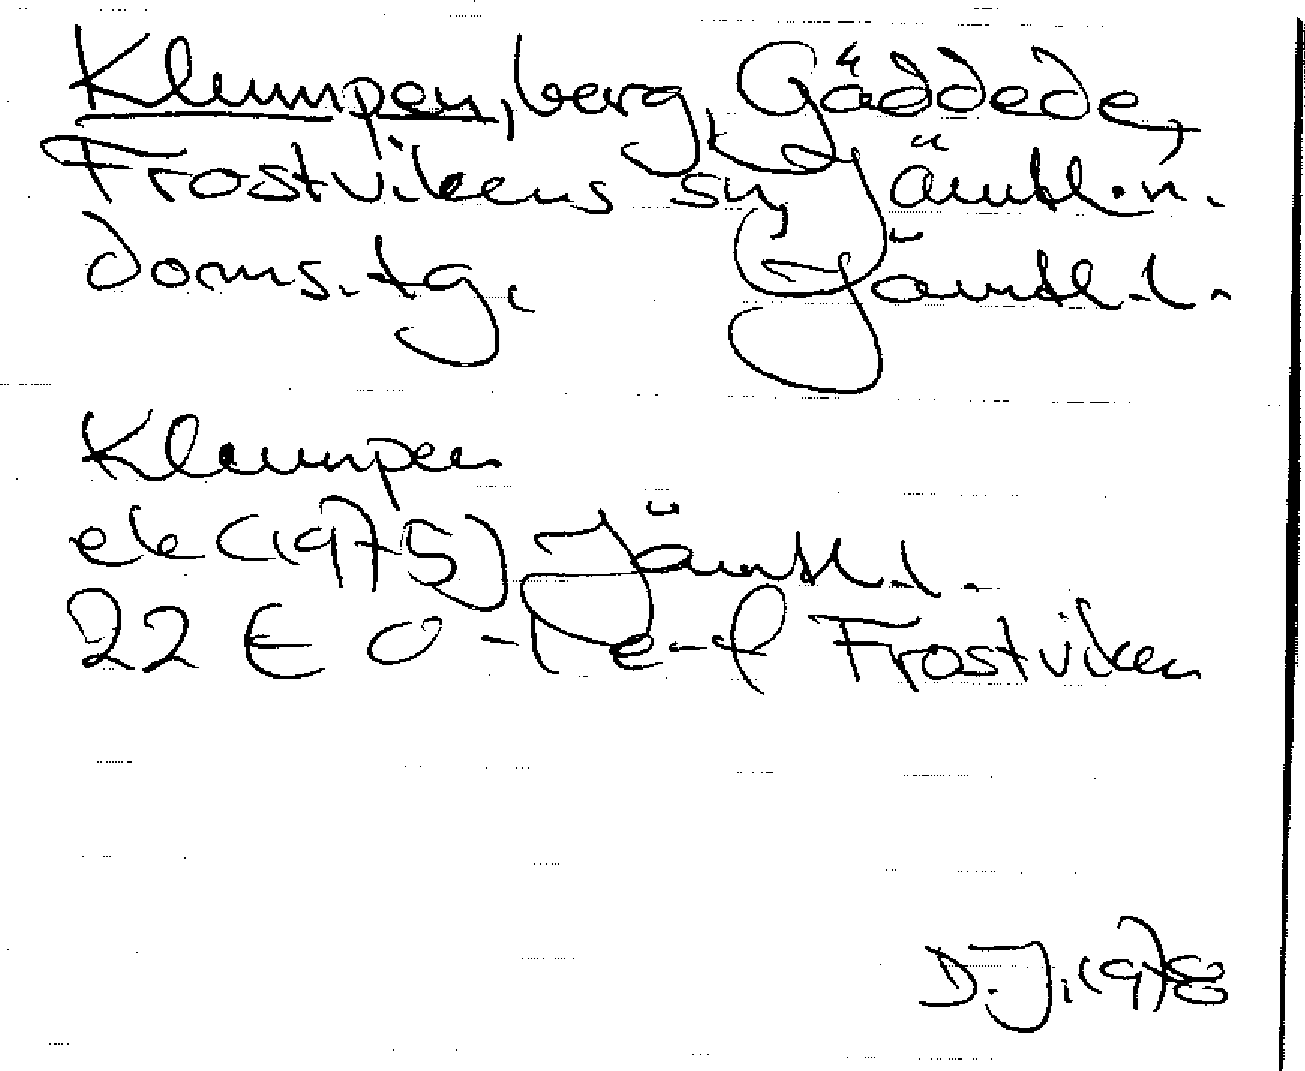 Klumpen, berg, Gäddede,
Frostvikens sn, Jämtl. n.
doms. tg. Jämtl. l.
Klumpen
ek (1975) Jämtl. l.
22 E 0-1 e-f Frostviken
D. J. 1978